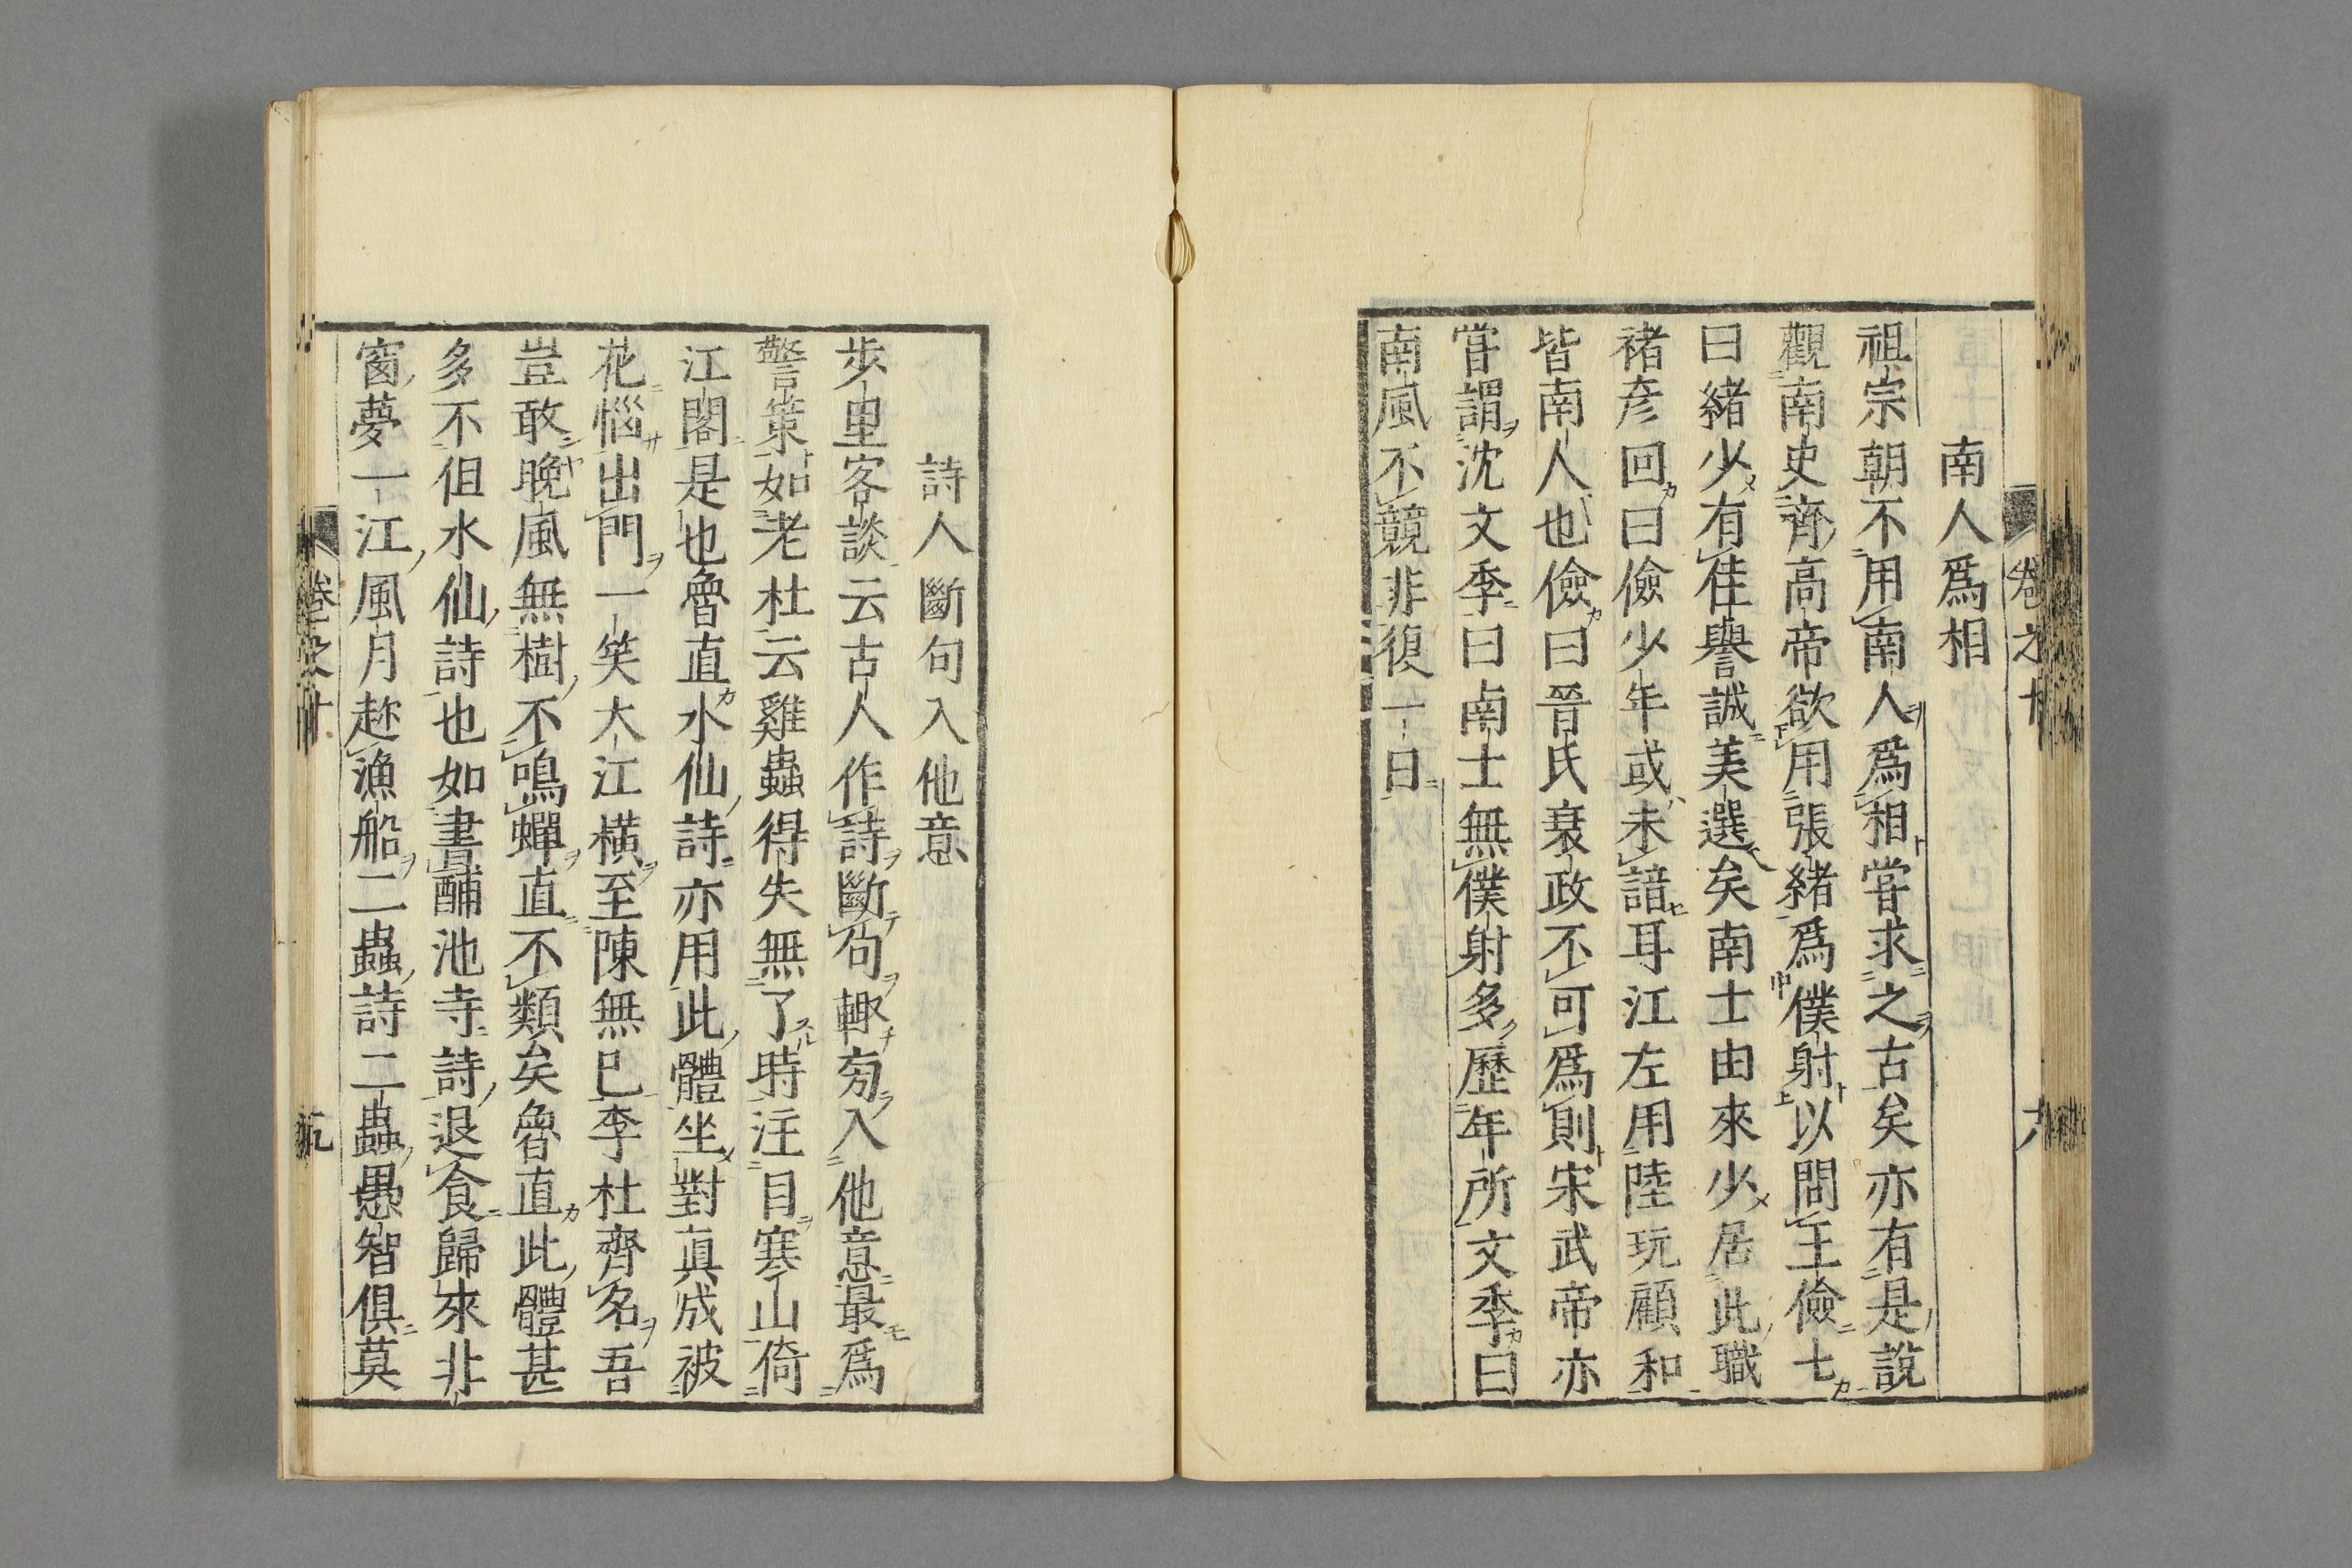 卷之十
南人爲相
祖宗朝不用南人爲相嘗求之古矣亦有是說
觀南史齊高帝欲用張緒爲僕射以問王儉七
曰緒少有佳譽誠美選矣南士由來少居此職
褚彦回曰儉少年或未諳耳江左用陸玩顧和
皆南人也儉曰晉氏衰政不可爲則宋武帝亦
嘗謂沈文季曰南士無僕射多歷年所文季曰
南風不競非復一日
詩人斷句入他意
步里客談云古人作詩斷句輙㫄入他意最爲
警策如老杜云雞蟲得失無了時注目寒山倚
江閣是也魯直水仙詩亦用此體坐對眞成被
花惱出門一笑大江橫至陳無已李杜齊名吾
豈敢晚風無樹不鳴蟬直不類矣魯直此體甚
多不但水仙詩也如書酺池寺詩退食歸來非
窗夢一江風月趂漁船二蟲詩二蟲愚智俱莫